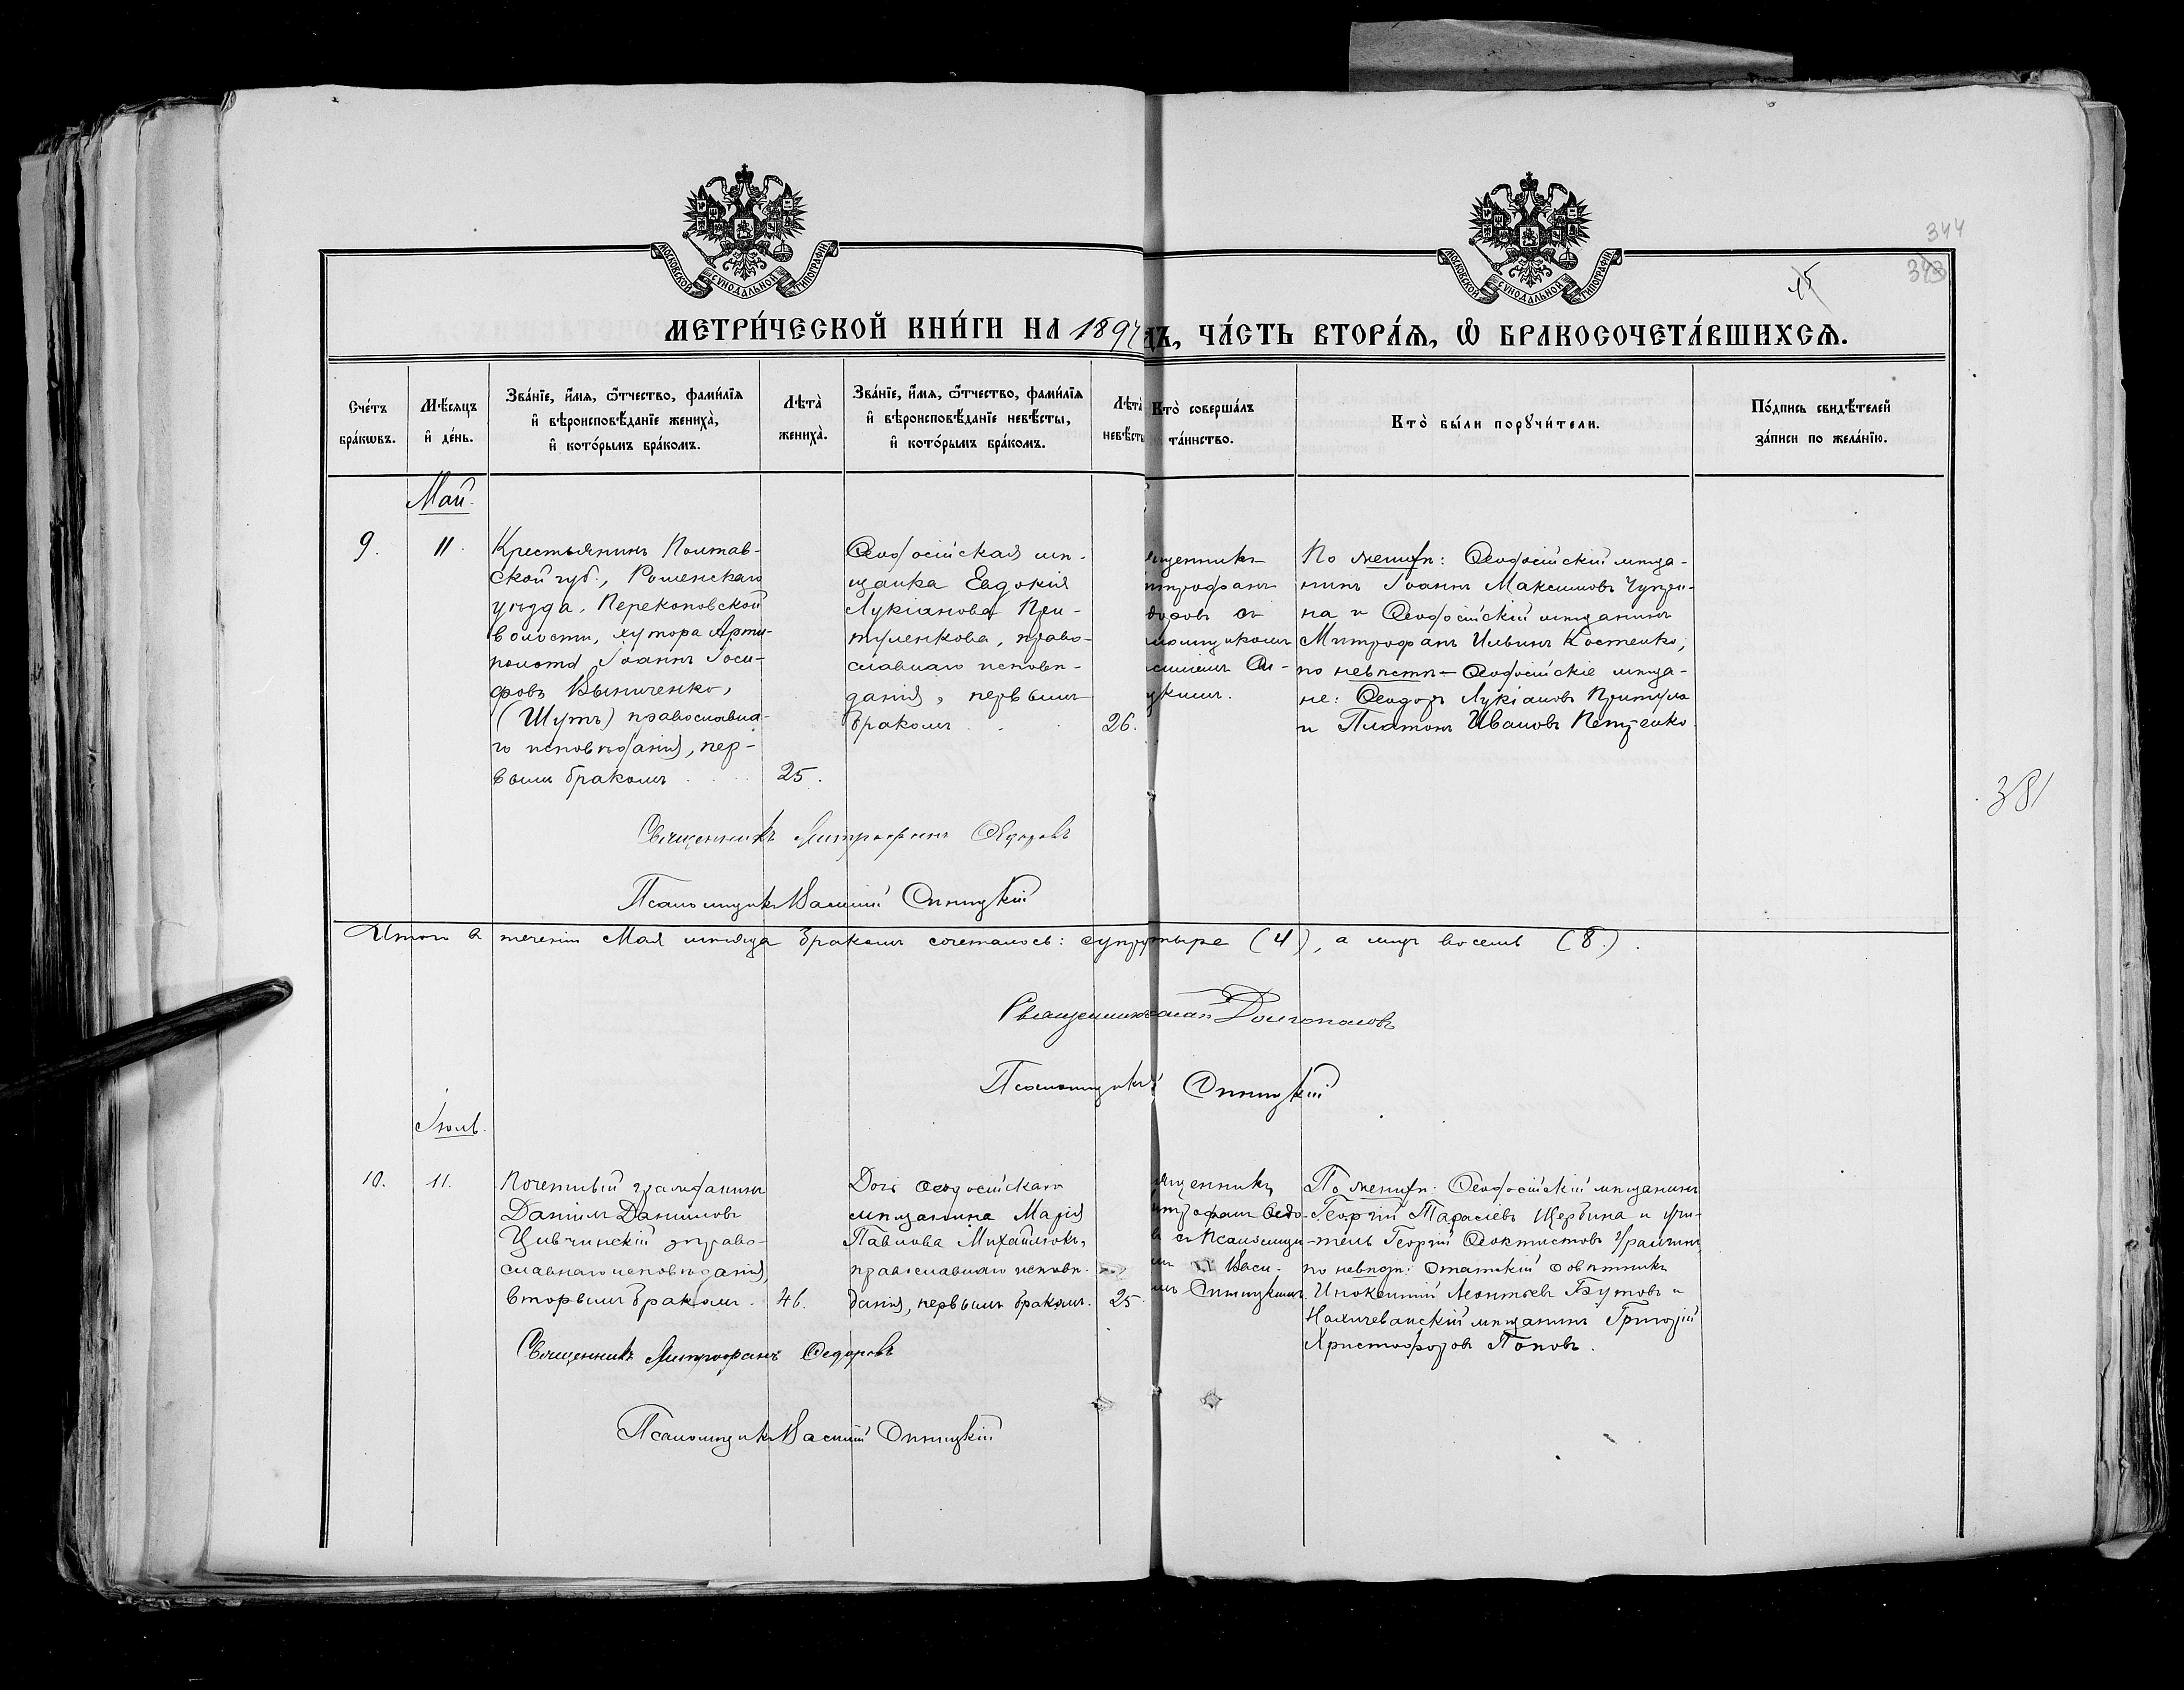 344
343
15
МОСКОВСКОЙ СѴНОДАЛЬНОЙ ТИПОГРАФІИ
МОСКОВСКОЙ СѴНОДАЛЬНОЙ ТИПОГРАФІИ
МЕТРИ́ЧЕСКОЙ КНИ́ГИ НА 1894
ДЪ, ЧА́СТЬ ВТОРА́Ѧ, Ѽ БРАКОСОЧЕТА́ВШИХСѦ.
Сче́тъ
бра́кѡвъ.
Мѣ́сяцъ
и҆ де́нь.
Зва́нїе, и҆́мѧ, ѻ҆́тчество, фами́лїѧ
и҆ вѣроисповѣ́данїе жениха̀,
и҆ кото́рымъ бра́комъ.
Лѣта̀
жениха̀.
Зва́нїе, и҆́мѧ, ѻ҆́тчество, фами́лїѧ
и҆ вѣроисповѣ́данїе невѣ́сты,
и҆ кото́рымъ бра́комъ.
Лѣта̀
невѣ́сты
Кто̀ соверша́лъ
та́инство.
Кто̀ бы́ли порꙋчи́тели.
По́дпись свидѣ́телей
за́писи по жела́нїю.
Май.
9.
11.
Крестьянинъ Полтав-
ской губ., Роменскаго
уѣзда, Перекоповской
волости, хутора Арти-
полота, Іоаннъ Іоси-
фовъ Винниченко,
(Шутъ) православна-
го исповѣданія, пер-
вымъ бракомъ
25.
Ѳеодосійская мѣ-
щанка Евдокія
Лукіанова При-
туленкова, право-
славнаго исповѣ-
данія, первымъ
бракомъ
26.
ященникъ
итрофанъ
доровъ съ
аломщикомъ
силіемъ Си-
цкимъ.
По женихѣ: Ѳеодосійскій мѣща-
нинъ Іоаннъ Максимовъ Чупри-
на и Ѳеодосійскій мѣщанинъ
Митрофанъ Ильинъ Костенко,
по невѣстѣ – Ѳеодосійскіе мѣща-
не: Ѳеодоръ Лукіановъ Притула
и Платонъ Ивановъ Петренко
381
Священникъ Митрофанъ Ѳедоровъ
Псаломщикъ Василій Синицкій
Итого въ теченіи Мая мѣсяца бракомъ сочеталось: супр тыре (4), а лицъ восемь (8).
Священникъ Долгополовъ
Псаломщикъ Синицкій
Іюль.
10.
11.
Почетный гражданинъ
Даніилъ Даниловъ
Цивчинскій, право-
славнаго исповѣданія,
вторымъ бракомъ.
46.
Дочь Ѳеодосійскаго
мѣщанина Марія
Павлова Михайлюкъ,
православнаго исповѣ-
данія, первымъ бракомъ.
25.
ященникъ
итрофанъ Ѳедо-
въ съ Псаломщи-
мъ Васи-
мъ Синицкимъ.
По женихѣ: Ѳеодосійскій мѣщанинъ
Георгій Тарасіевъ Щербина и учи-
тель Георгій Ѳеоктистовъ
по невѣстѣ: Статскій совѣтникъ
Иннокентій Леонтьевъ Бутовъ и
Нахичеванскій мѣщанинъ Григорій
Христофоровъ Поповъ.
Священникъ Митрофанъ Ѳедоровъ
Псаломщикъ Василій Синицкій